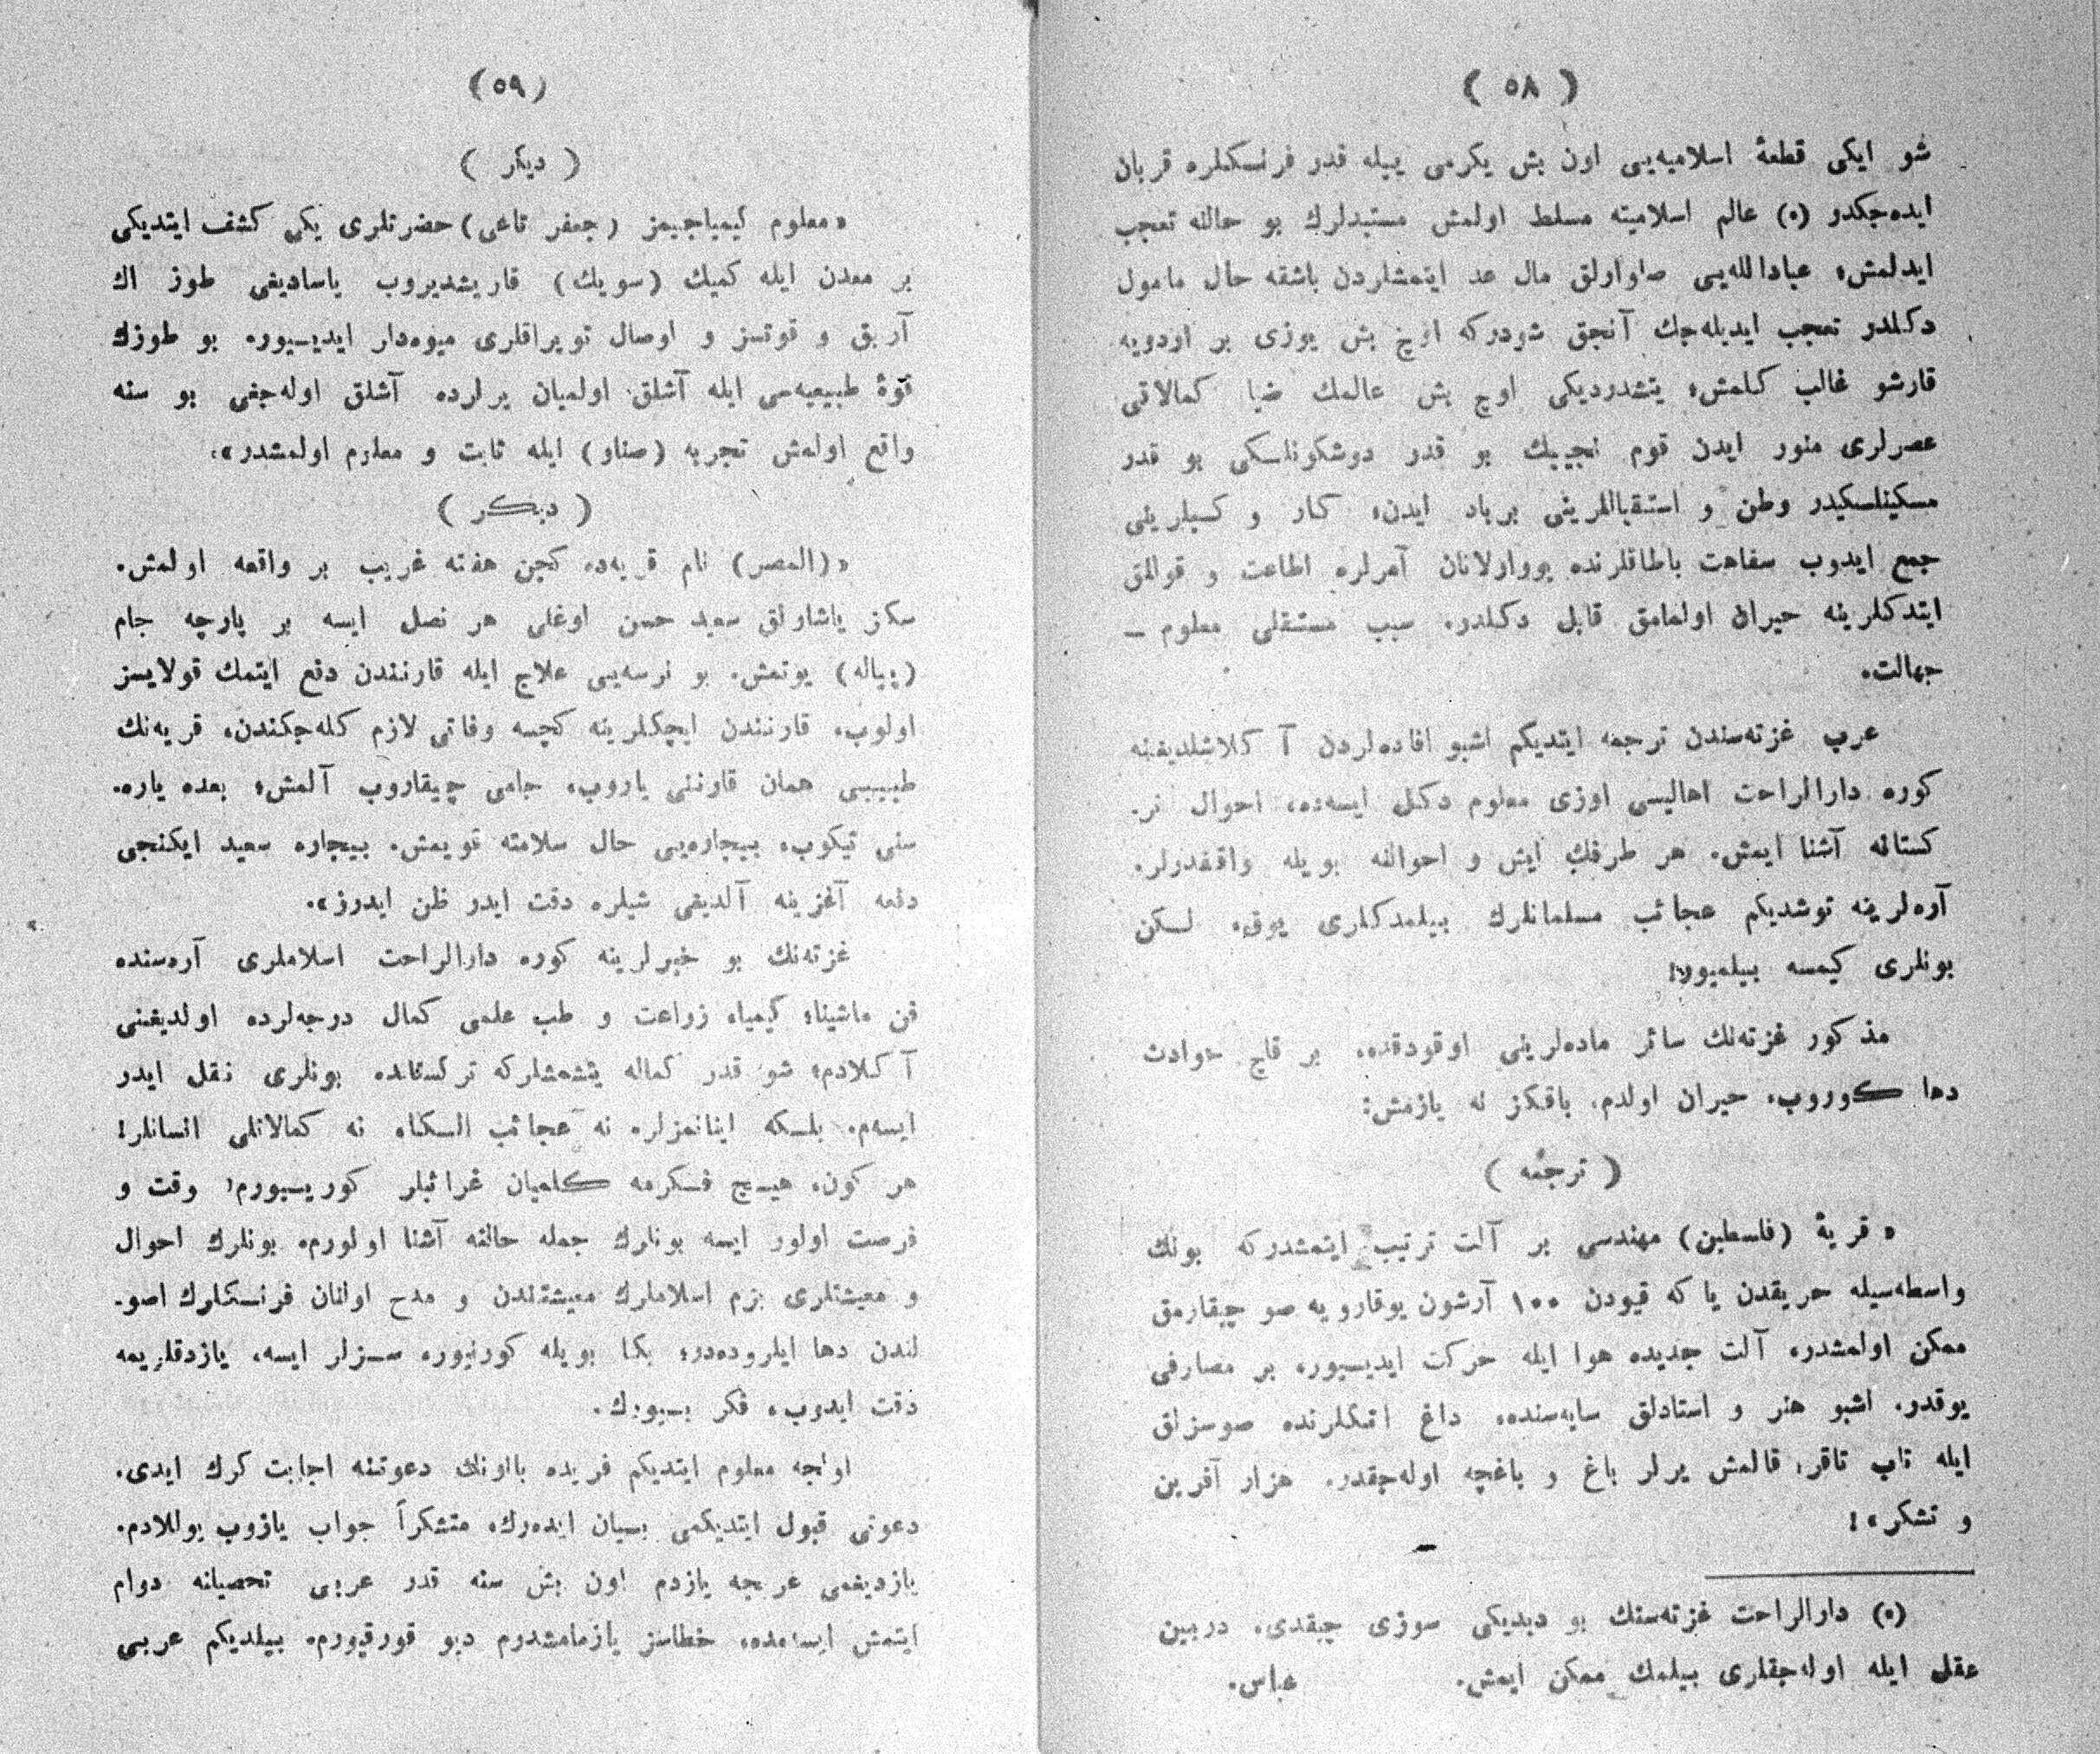 ( ٥٨ )
شو ايكى قطعهٔ اسلاميه‌يى اون بش يكرمى ييله قدر فرنسكلره قربان
ايده‌جكدر (٠) عالم اسلاميته مسلط اولمش مستبدلرك بو حالنه تعجب
ايدلمش، عبادالله‌يى صاوارلق مال عد ايتمشلردن باشقه حال مامول
دكلدر تعجب ايديله‌جك آنجق شودركه اوچ بش يوزى بر اردويه
قارشو غالب كلمش، يتشدرديكى اوچ بش عالمك ضيا كمالاتى
عصرلرى منور ايدن قوم نجيبك بو قدر دوشكونلسكى بو قدر
مسكينلسكيدر وطن و استقباللرينى برباد ايدن، كار و كسبلرينى
جمع ايدوب سفاهت باطاقلرنده يووارلانان آمرلره اطاعت و قوللق
ايتدكلرينه حيران اولمامق قابل دكلدر. سبب مستقلى معلوم —
جهالت.
عرب غزته‌سندن ترجمه ايتديكم اشبو افاده‌لردن آ كلاشلديغينه
كوره دارالراحت اهاليسى اوزى معلوم دكل ايسه‌ده، احوال تر-
كستانه آشنا ايمش. هر طرفك ايش و احوالنه بويله واقفدرلر.
آره‌لرينه توشديكم عجائب مسلمانلرك بيلمدكلرى يوق، لسكن
بونلرى كيمسه بيلميور!
مذكور غزته‌نك سائر ماده‌لرينى اوقودقده، بر قاچ حوادث
دها كوروب، حيران اولدم. باقكز نه يازمش:
( ترجمه )
« قريهٔ (فلسطين) مهندسى بر آلت ترتيب ايتمشدركه بونك
واسطه‌سيله حريقدن يا كه قيودن ١٠٠ آرشون يوقارويه صو چيقارمق
ممكن اولمشدر. آلت جديده هوا ايله حركت ايديسيور، بر مصارفى
يوقدر. اشبو هنر و استادلق سايه‌سنده، داغ اتكلرنده صوسزلق
ايله تاپ تاقر، قالمش يرلر باغ و باغچه اوله‌جقدر. هزار آفرين
و تشكر»!
(٠) دارالراحت غزته‌سنك بو ديديكى سوزى چيقدى. دربين
عقل ايله اوله‌جقلرى بيلمك ممكن ايمش. عباس.
(٥٩)
( ديكر )
«معلوم كيمياجيمز (جعفر تاعى) حضرتلرى يكى كشف ايتديكى
بر معدن ايله كميك (سويك) قاريشديروب ياساديغى طوز اك
آريق و قوتسز و اوصال توپراقلرى ميوه‌دار ايديسيور. بو طوزك
قوهٔ طبيعيه‌سى ايله آشلق اولميان يرلرده آشلق اوله‌جغى بو سنه
واقع اولمش تجربه (صناو) ايله ثابت و معلوم اولمشدر».
( ديكر )
«(المصر) نام قريه‌ده كچن هفته غريب بر واقعه اولمش.
سكز ياشاولق سعيد حسن اوغلى هر نصل ايسه بر پارچه جام
(پياله) يوتمش. بو نرسه‌يى علاج ايله قارنندن دفع ايتمك قولايسز
اولوب، قارنندن ايچكلرينه كچسه وفاتى لازم كله‌جكندن، قريه‌نك
طبيبى همان قارننى ياروب، جامى چيقاروب آلمش، بعده ياره-
سنى تيكوب، بيچاره‌يى حال سلامته قويمش. بيچاره سعيد ايكنجى
دفعه آغزينه آلديغى شيلره دقت ايدر ظن ايدرز».
غزته‌نك بو خبرلرينه كوره دارالراحت اسلاملرى آره‌سنده
فن ماشينا، كيميا، زراعت و طب علمى كمال درجه‌لرده اولديغنى
آ كلادم، شو قدر كماله يتشمشلركه تركستانده بونلرى نقل ايدر
ايسه‌م، بلسكه اينانمزلر. نه عجائب السكا، نه كمالاتلى انسانلر!
هر كون، هيچ فسكرمه كلميان غرائبلر كوريسيورم، وقت و
فرصت اولور ايسه بونلرك جمله حالنه آشنا اولورم. بونلرك احوال
و معيشتلرى بزم اسلاملرك معيشتندن و مدح اولنان فرنسكلرك اصو-
لندن دها ايلروده‌در، بكا بويله كورنيور. سزلر ايسه، يازدقلريمه
دقت ايدوب، فكر بيورك.
اولجه معلوم ايتديكم فريده بانونك دعوتنه اجابت كرك ايدى.
دعوتى قبول ايتديكمى بسيان ايده‌رك، متشكراً جواب يازوب يوللادم.
يازديغمى عربجه يازدم اون بش سنه قدر عربى تحصيلنه دوام
ايتمش ايسه‌مده، خطاسز يازمامشدرم ديو قورقيورم. بيلديكم عربى